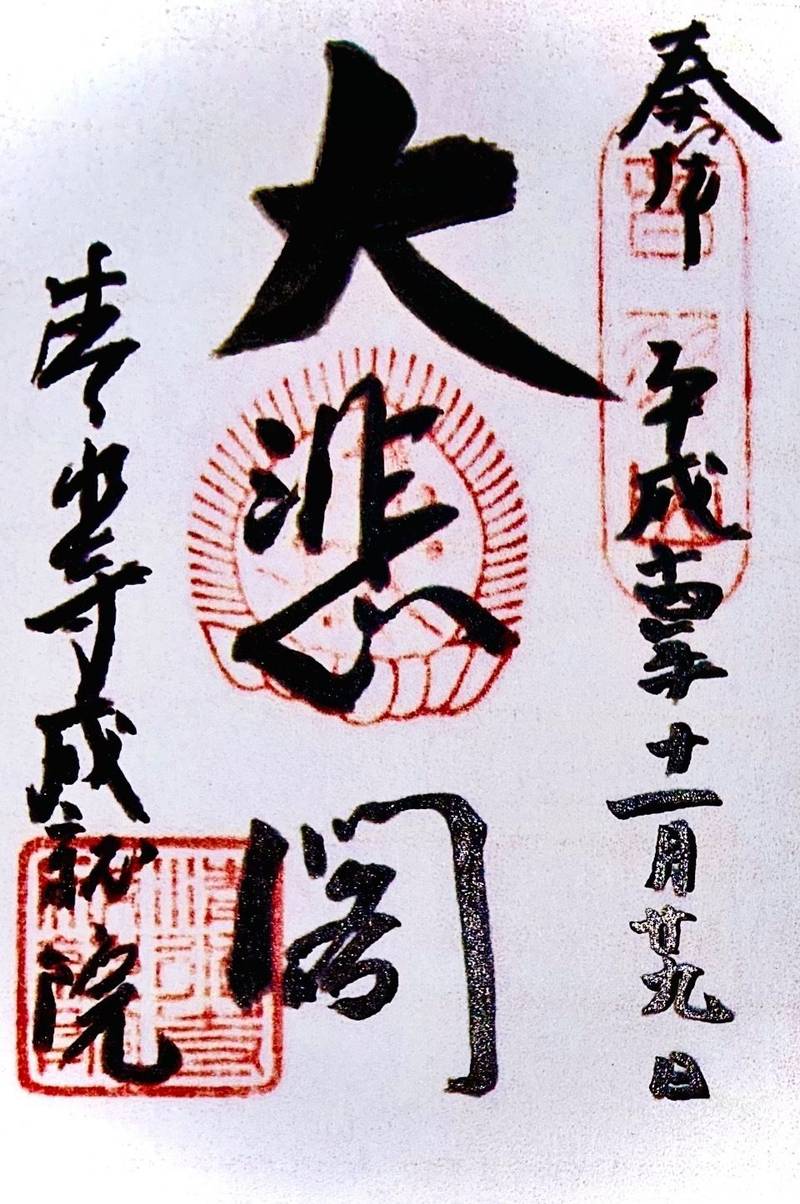 奉拝 平成十四年十一月廿九日
大悲閣
清水寺成就院